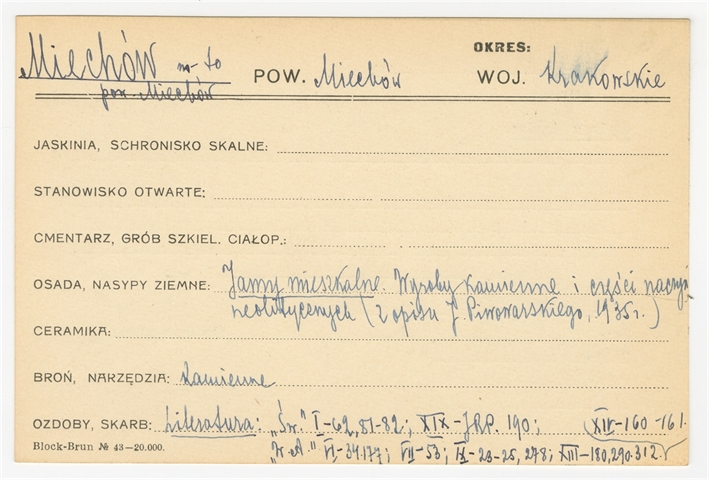 OKRES:
Miechów m-to POW. Miechów WOJ. Krakowskie
pow. Miechów
JASKINIA, SCHRONISKO SKALNE:
STANOWISKO OTWARTE:
CMENTARZ, GRÓB SZKIEL. CIAŁOP.:
OSADA, NASYPY ZIEMNE: Jamy mieszkalne. Wyroby kamienne i części naczyń
neolitycznych (z opisu J. Piwowarskiego, 1935 r.)
CERAMIKA:
BROŃ, NARZĘDZIA: Kamienne
OZDOBY, SKARB: Literatura: „Św." I-62, 81-82; XIX- 190; XIV-160-161.
Block-Brun № 43-20.000. „W.A." VI-34.177; VII-53; IX-23-25, 278; XIII-180,290.312.